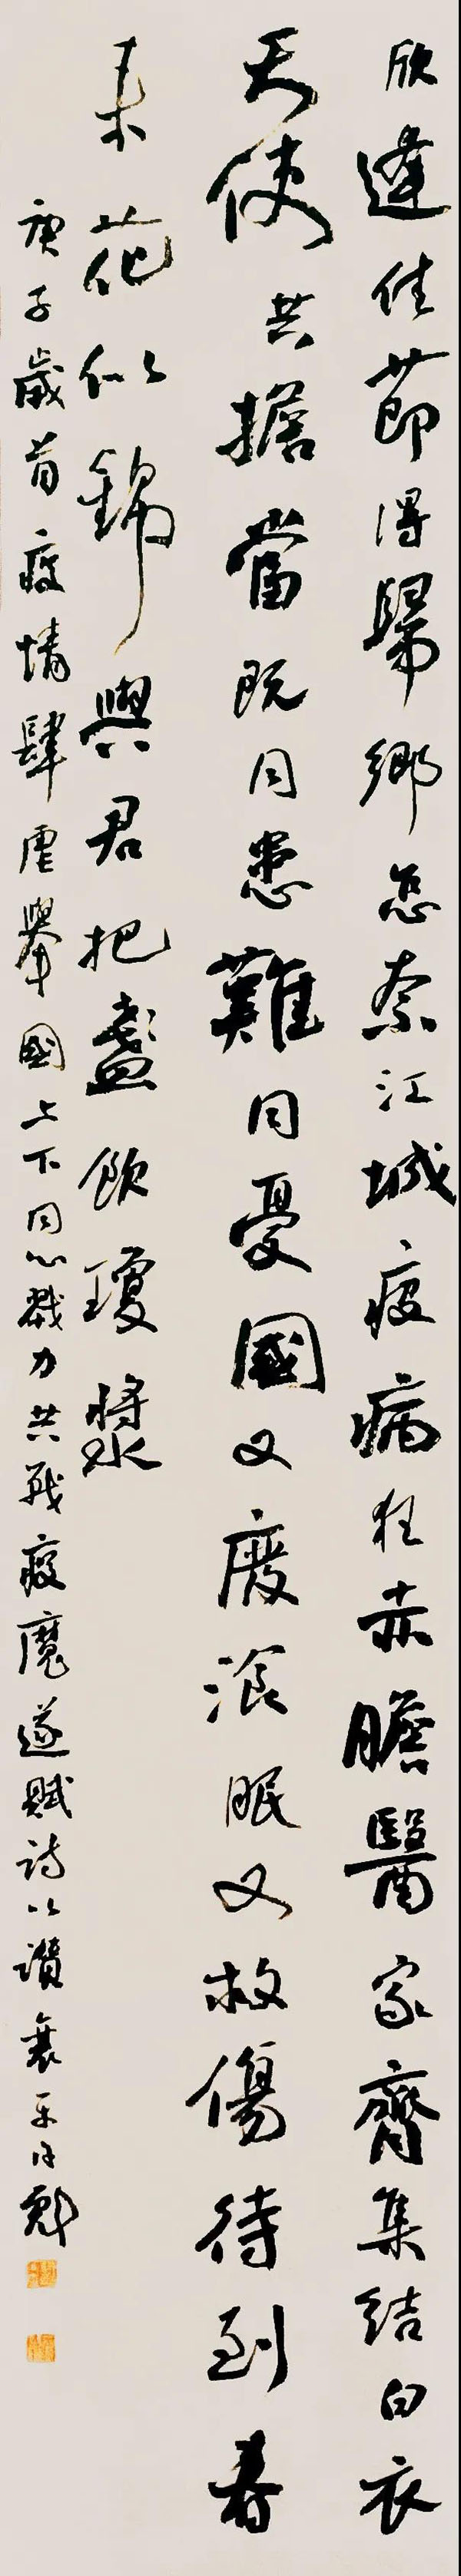 欣逢佳節得歸鄉怎奈江城疫病狂赤膽醫家齊集結白衣
天使共擔當既同患難同憂國又廢飡眠又救傷待到春
來花似錦與君把盞飲瓊漿
庚子歲首疫情肆虐舉國上下同心戮力共戰疫魔遂賦詩以讚襄平